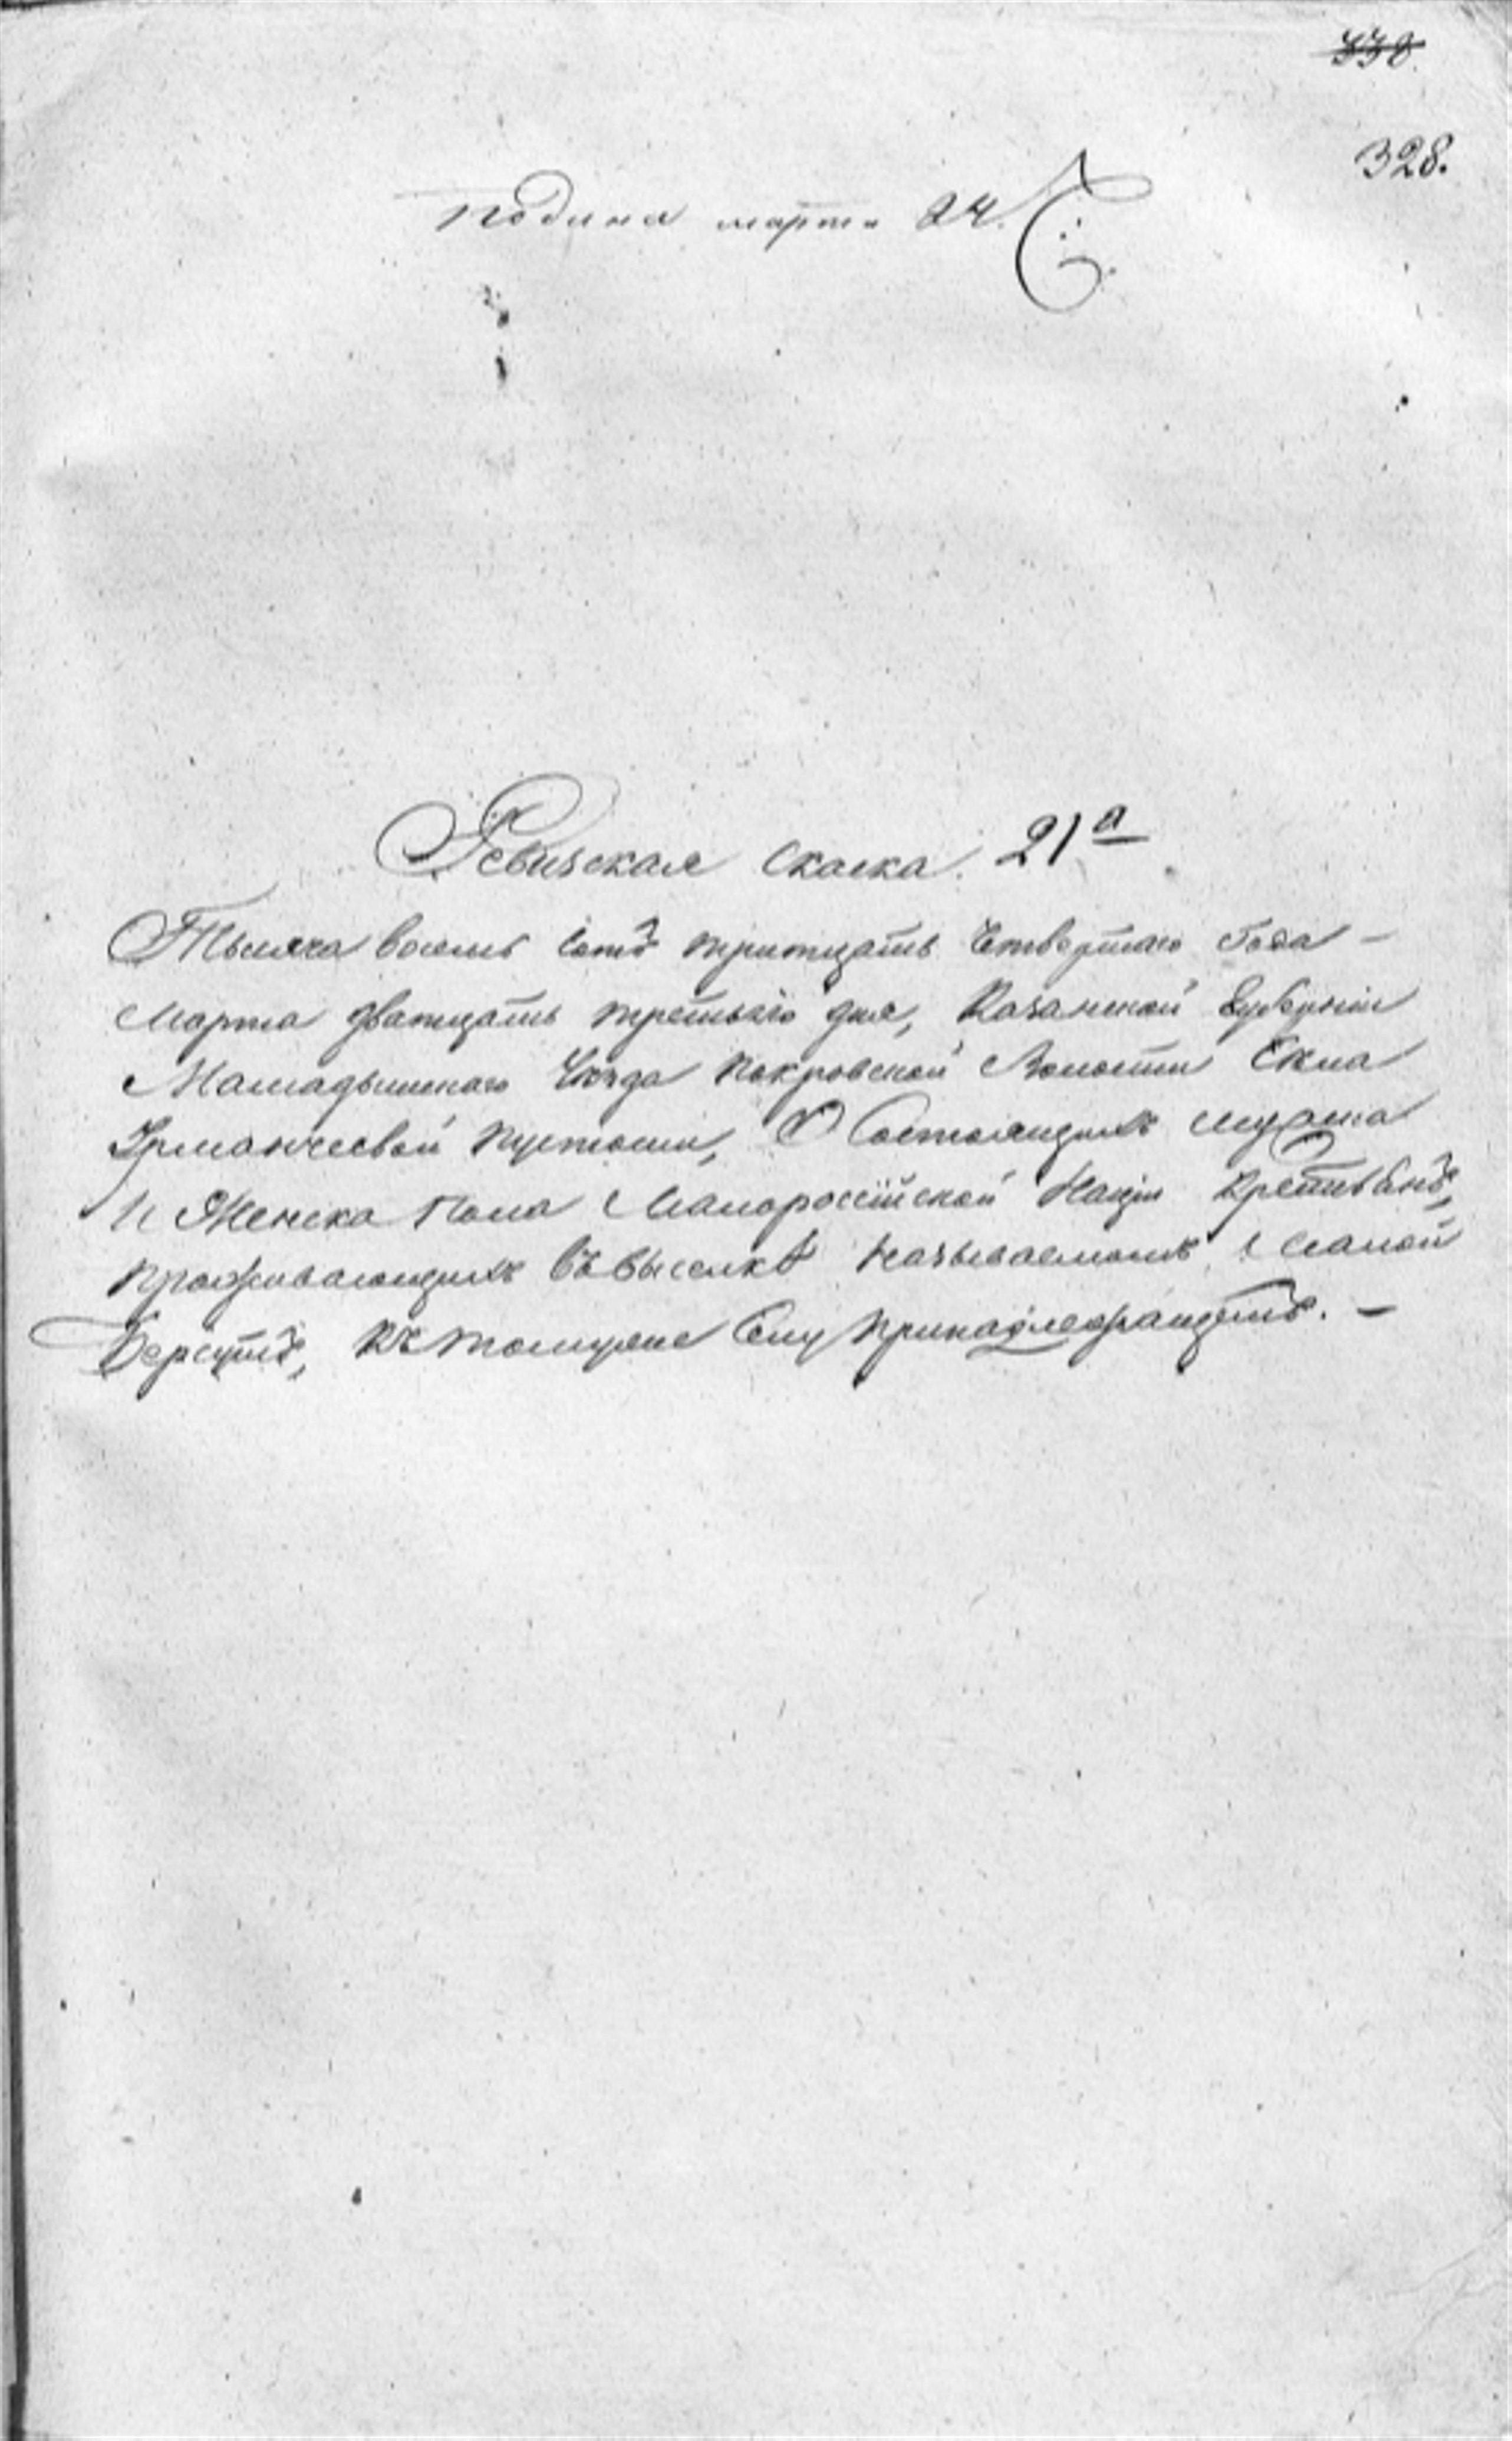 338
328.
Подана марта 24.
Ревизская скаска. 21а
Тысяча восемь сотъ тритцать Четвертаго Года —
Марта дватцать третьяго дня, Казанской Губернии
Мамадышскаго Уезда Покровской Волости Села
Ирманчеевой пустоши, О Состоящихъ мужеска
И Женска Пола Малороссiйской Нацiи Крестьянъ,
проживающихъ въ выселкѣ называемомъ Малой
Берсутъ, Къ томуже Селу принадлежащемъ. —